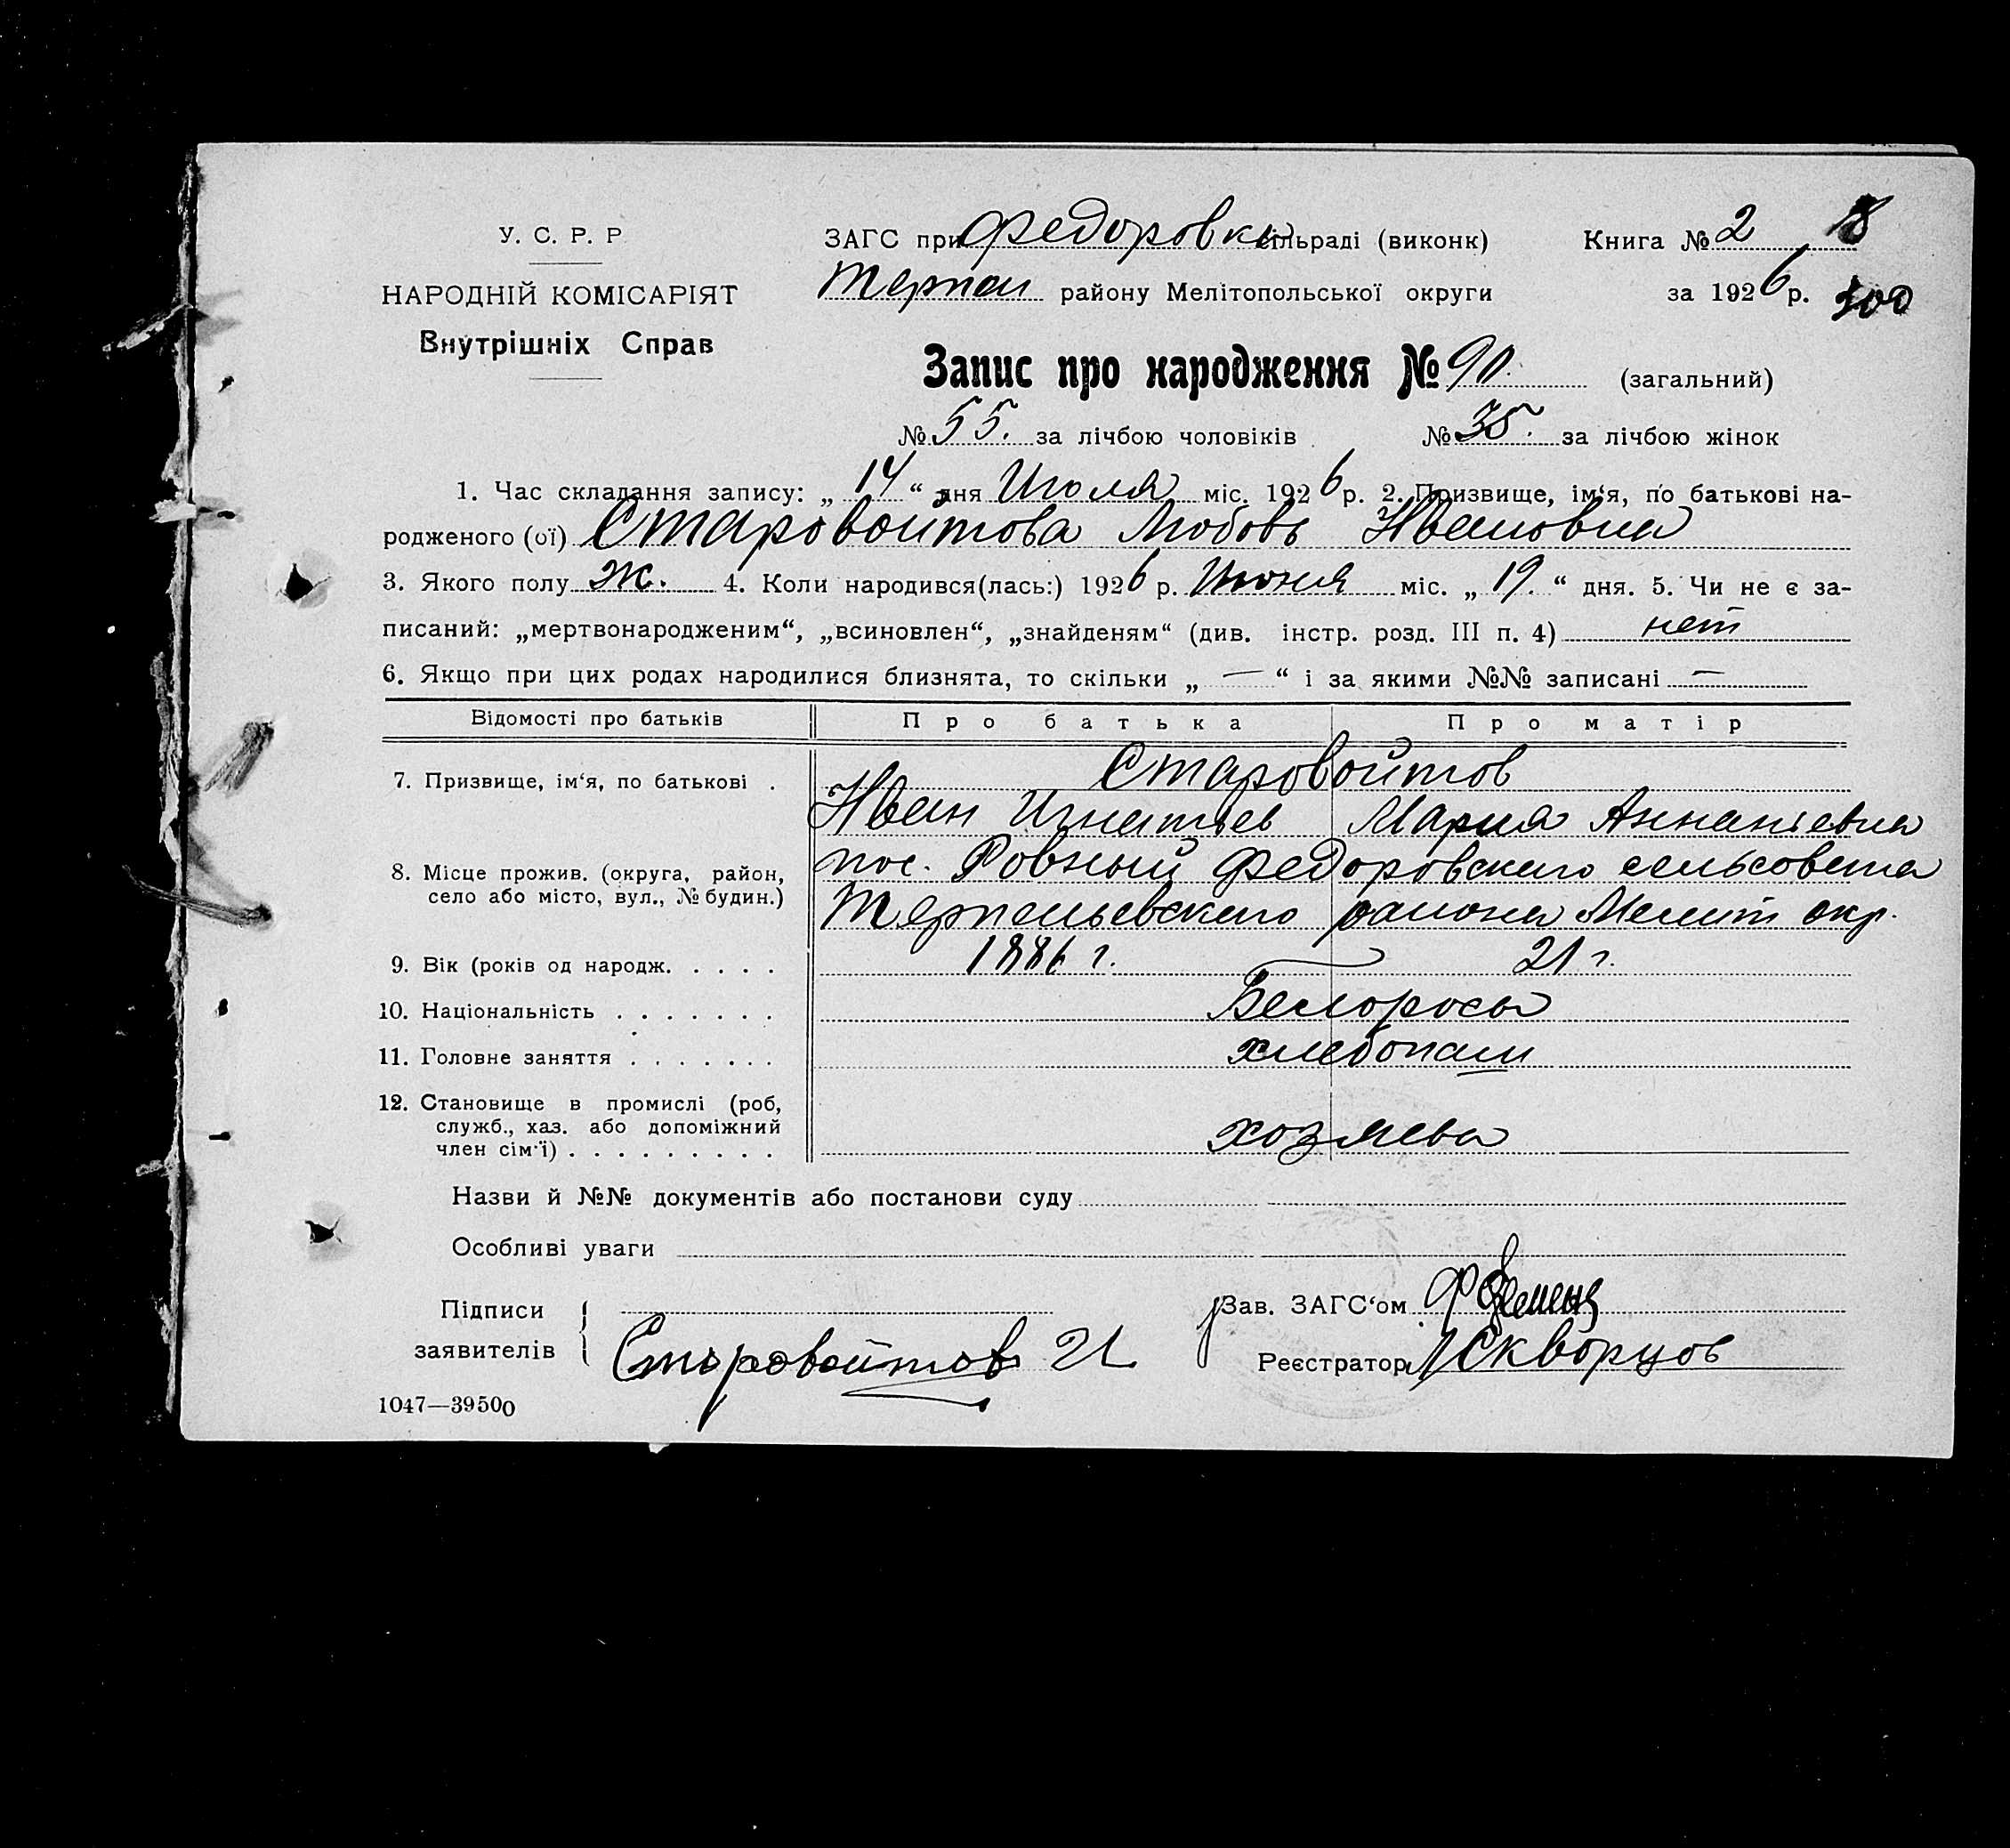 У. С. Р. Р
НАРОДНІЙ КОМІСАРІЯТ
Внутрішніх Справ
ЗАГС при Федоровк сільраді (виконк)
Терпел району Мелітопольської округи
Книга № 2
за 1926 р.
Запис про народження № 90. (загальний)
№ 55. за лічбою чоловіків № 35. за лічбою жінок
1. Час складання запису: „ 14 “ дня Июля міс. 1926 р. 2. Призвище, ім‘я, по батькові на-
родженого (ої) Старовойтова Любовь Ивановна
3. Якого полу ж. 4. Коли народився(лась:) 1926 р. Июня міс. „ 19. “ дня. 5. Чи не є за-
писаний: „мертвонародженим“, „всиновлен“, „знайденям“ (див. інстр. розд. III п. 4) нет
6. Якщо при цих родах народилися близнята, то скільки „ — “ і за якими №№ записані —
Відомості про батьків Про батька Про матір
7. Призвище, ім‘я, по батькові . Старовойтов
Иван Игнатьев Мария Ананіевна
8. Місце прожив. (округа, район,
село або місто, вул., № будин.)
пос. Ровный Федоровского сельсовета
Терпельевского района Мелит окр.
9. Вік (років од народж. . . . . 1886 г. 21 г.
10. Національність . . . . . . . Белороссы
11. Головне заняття . . . . . . . хлебопаш
12. Становище в промислі (роб,
служб., хаз. або допоміжний
член сім‘ї) . . . . . . . . . хозяева
Назви й №№ документів або постанови суду
Особливі уваги
Підписи
заявителів
Старовойтов И
Зав. ЗАГС‘ом
Реєстратор Скворцов
1047—39500